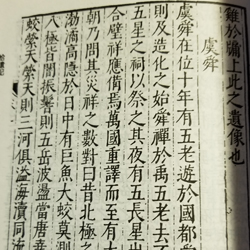 雞於牖上此之遺像也
虞舜
虞舜在位十年有五老遊於國都
則及造化之始舜禪於禹五老去
五星之祠以祭之其夜有五長星出
合璧祥應備焉萬國重譯而至有大
朝乃問其災祥之數對曰昔北極之
渤潏高隱於日中有巨魚大蛟莫測
八極皆暗振鬐則五岳波盪當唐堯
蛟縈天縈天則三河俱溢海瀆同